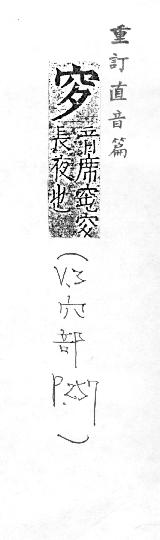 重訂直音篇
穸
音席窀穸
長夜也
(V.3
穴部
P.257
)